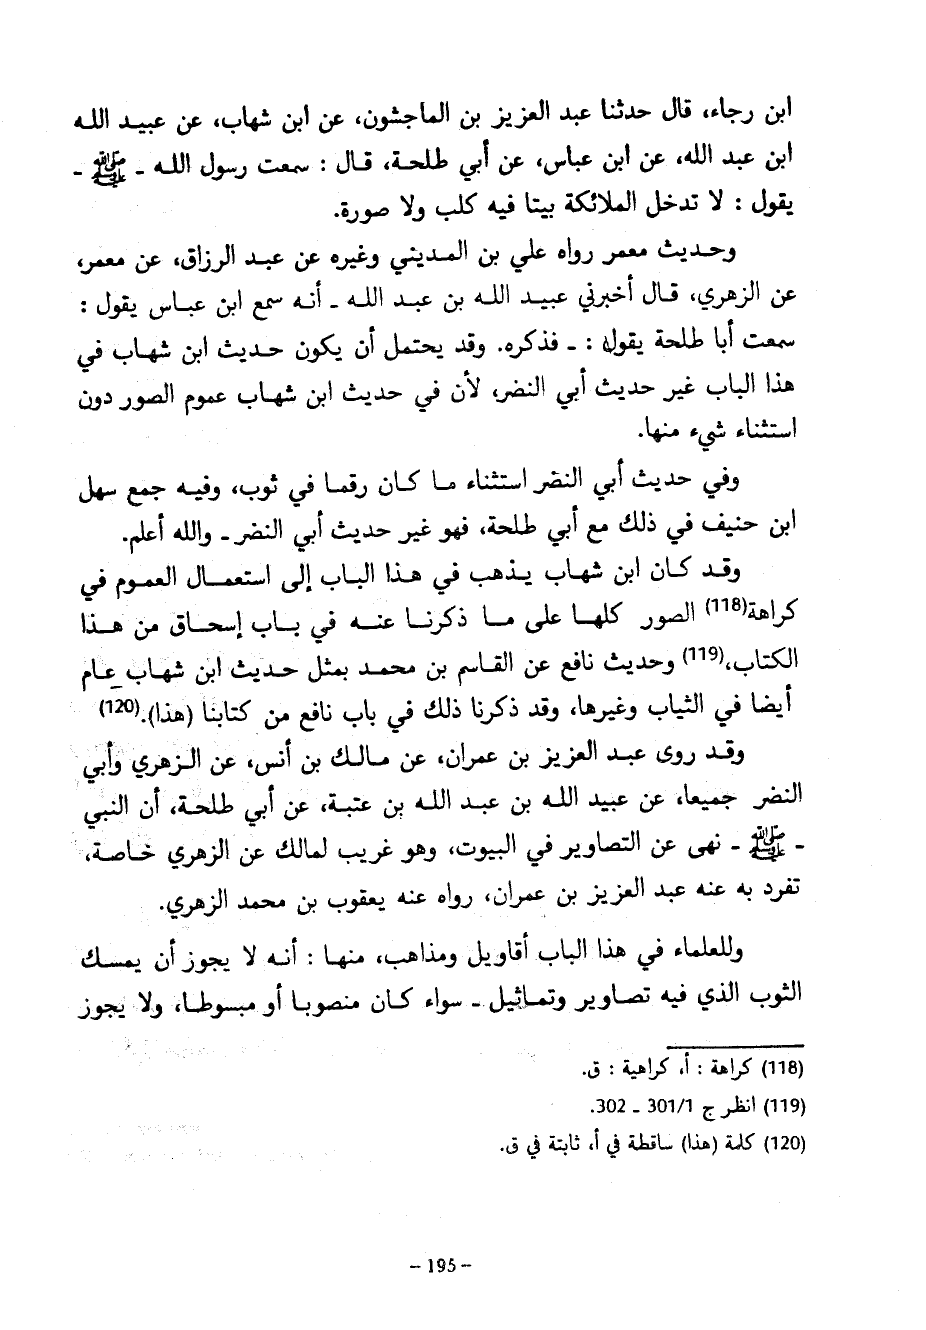 ابن رجاء، قال حدثنا عبد العزيز بن الماجشون، عن ابن شهاب، عن عبيد الله
ابن عبد الله، عن ابن عباس، عن أبي طلحة، قال : سمعت رسول الله ـ ﷺ ـ
يقول : لا تدخل الملائكة بيتا فيه كلب ولا صورة.
وحديث معمر رواه علي بن المديني وغيره عن عبد الرزاق، عن معمر،
عن الزهري، قال أخبرني عبيد الله بن عبد الله ـ أنه سمع ابن عباس يقول :
سمعت أبا طلحة يقول : ـ فذكره. وقد يحتمل أن يكون حديث ابن شهاب في
هذا الباب غير حديث أبي النضر، لأن في حديث ابن شهاب عموم الصور دون
استثناء شيء منها.
وفي حديث أبي النضر استثناء ما كان رقما في ثوب، وفيه جمع سهل
ابن حنيف في ذلك مع أبي طلحة، فهو غير حديث أبي النضر ـ والله أعلم.
وقد كان ابن شهاب يذهب في هذا الباب إلى استعمال العموم في
كراهة(118) الصور كلها على ما ذكرنا عنه في باب إسحاق من هذا
الكتاب،(119) وحديث نافع عن القاسم بن محمد بمثل حديث ابن شهاب عام
أيضا في الثياب وغيرها، وقد ذكرنا ذلك في باب نافع من كتابنا (هذا).(120)
وقد روى عبد العزيز بن عمران، عن مالك بن أنس، عن الزهري وأبي
النضر جميعا، عن عبيد الله بن عبد الله بن عتبة، عن أبي طلحة، أن النبي
ـ ﷺ ـ نهى عن التصاوير في البيوت، وهو غريب لمالك عن الزهري خاصة،
تفرد به عنه عبد العزيز بن عمران، رواه عنه يعقوب بن محمد الزهري.
وللعلماء في هذا الباب أقاويل ومذاهب، منها : أنه لا يجوز أن يمسك
الثوب الذي فيه تصاوير وتماثيل ـ سواء كان منصوبا أو مبسوطا، ولا يجوز
(118) كراهة : أ، كراهية : ق.
(119) انظر ج 301/1 ـ 302.
(120) كلمة (هذا) ساقطة في أ، ثابتة في ق.
– 195 –